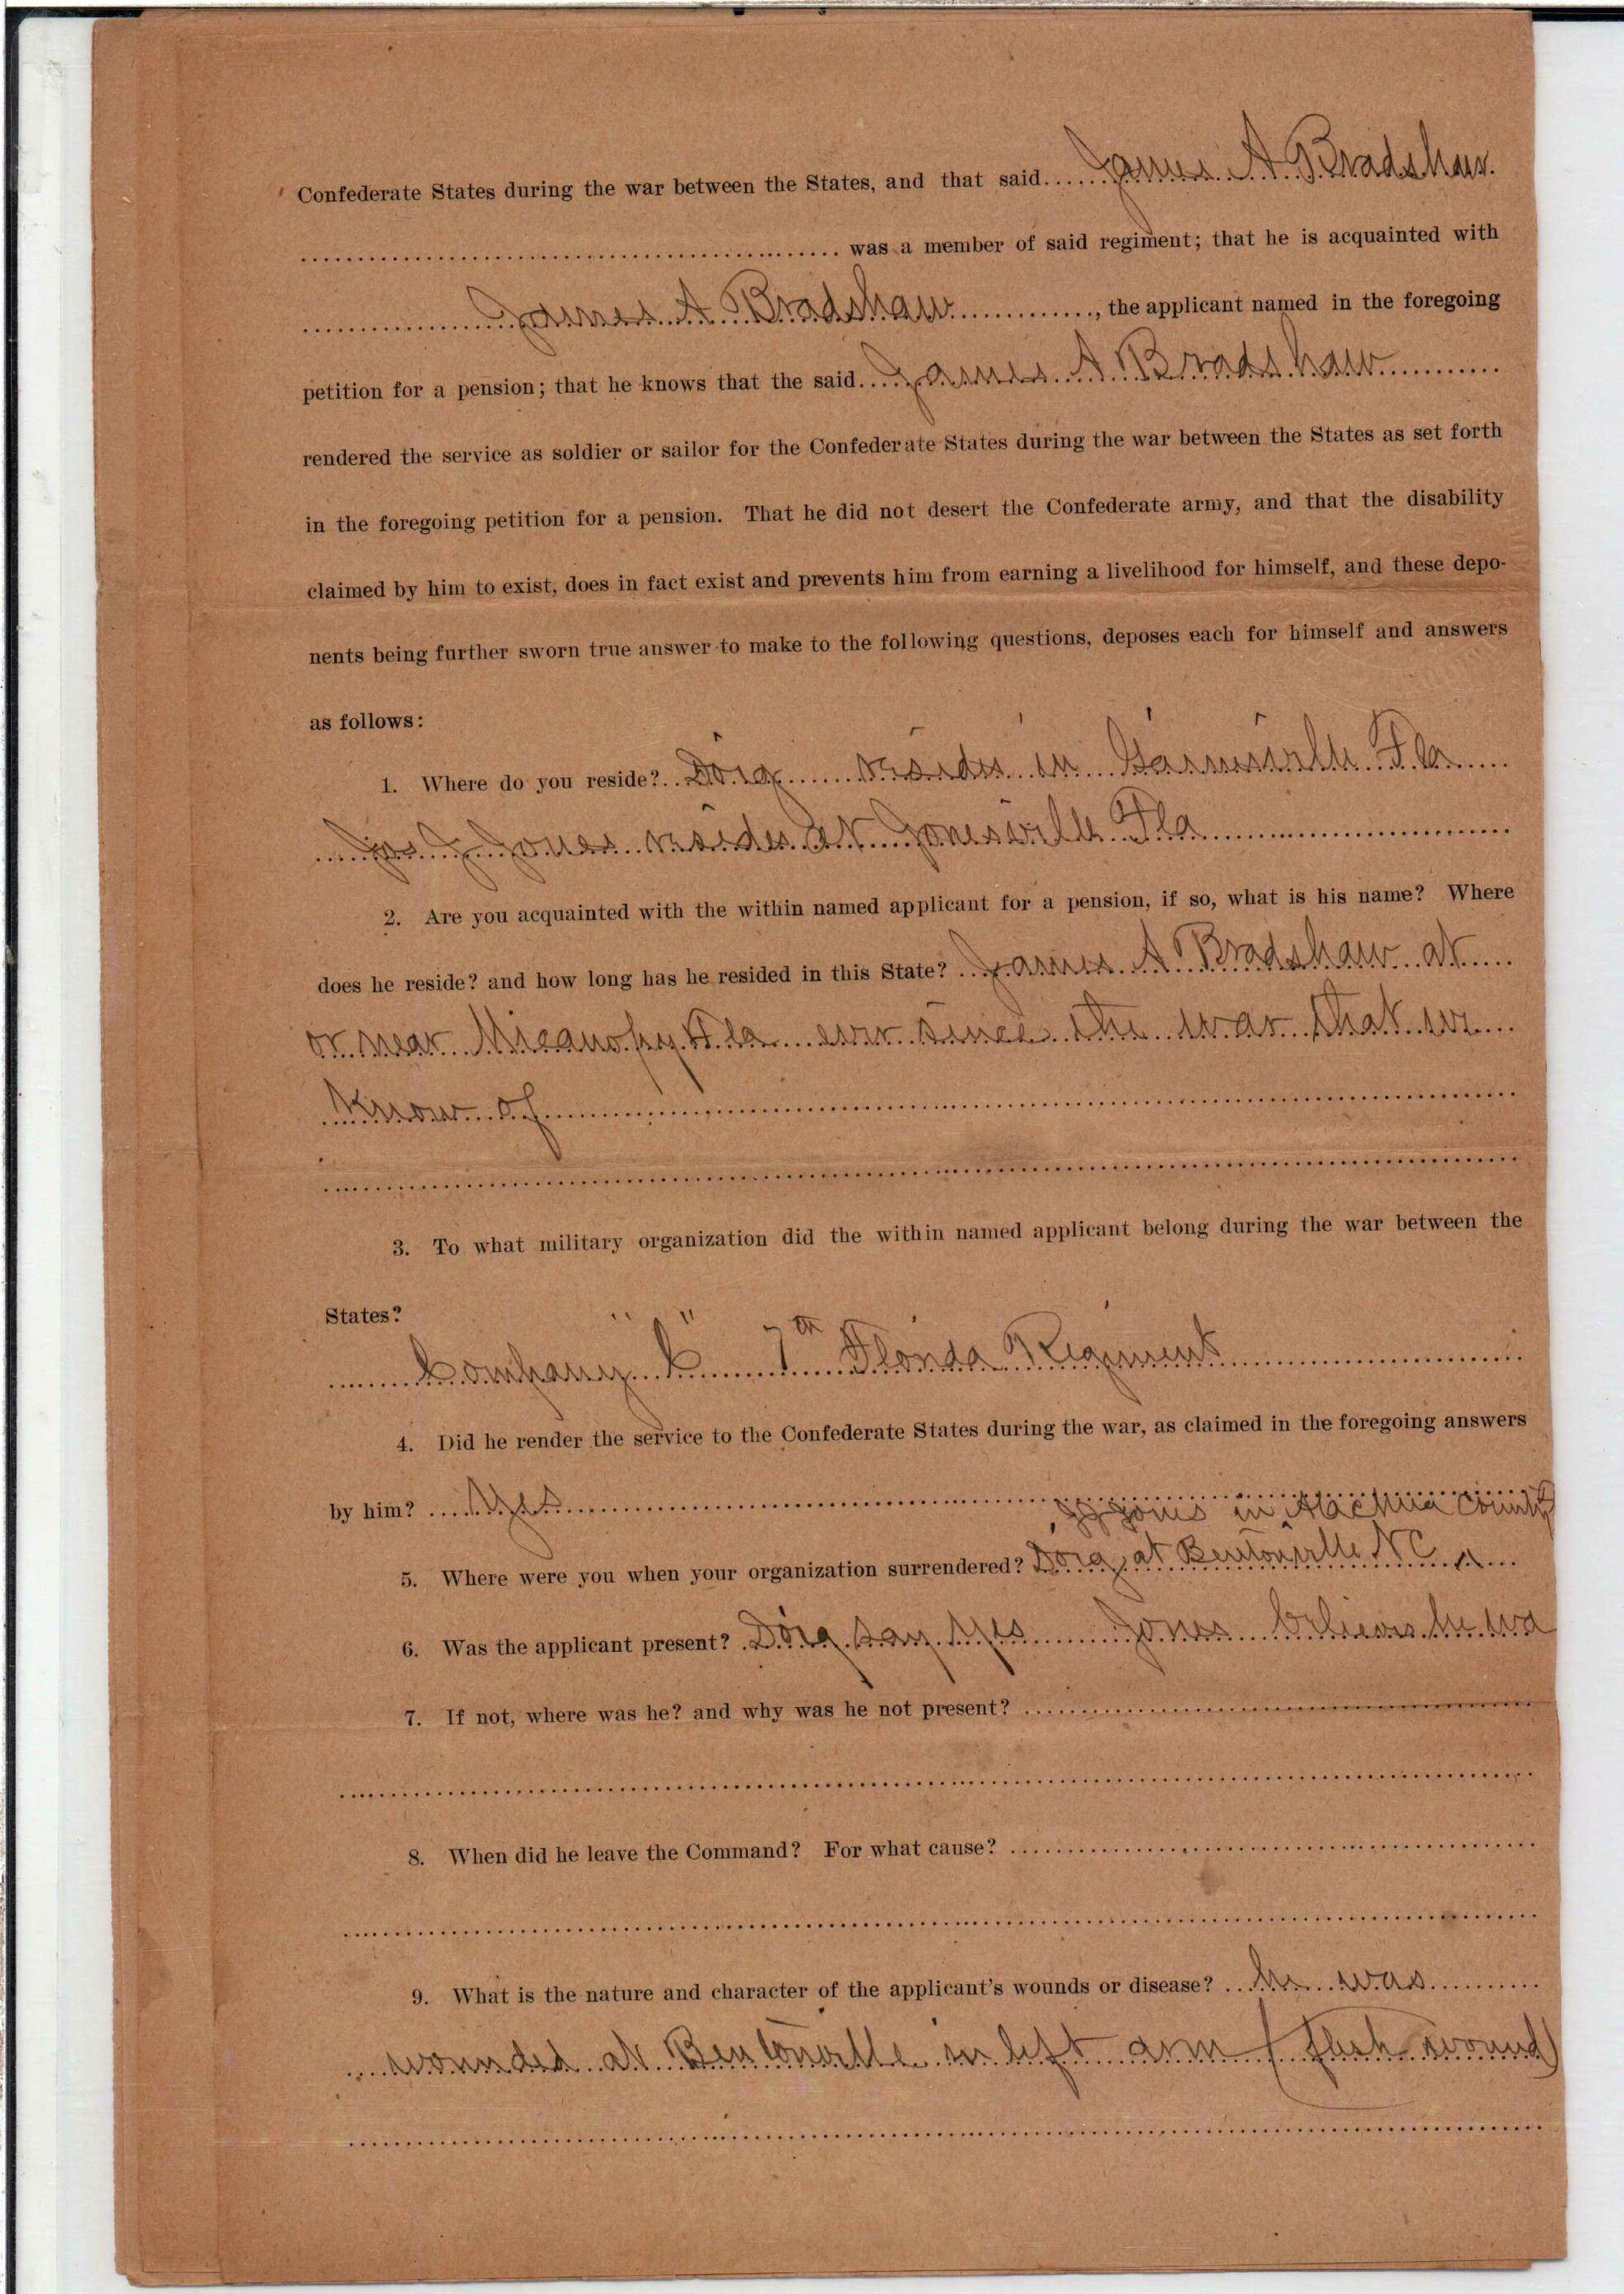 Confederate States during the war between the States, and that said James A Bradshaw
was a member of said regiment; that he is acquainted with
James A Bradshaw, the applicant named in the foregoing
petition for a pension; that he knows that the said James A Bradshaw
rendered the service as soldier or sailor for the Confederate States during the war between the States as set forth
in the foregoing petition for a pension. That he did not desert the Confederate army, and that the disability
claimed by him to exist, does in fact exist and prevents him from earning a livelihood for himself, and these depo-
nents being further sworn true answer to make to the following questions, deposes each for himself and answers
as follows:
1. Where do you reside? Doig resides in Gainesville Fla
Jas J Jones resides at Jonesville Fla
2. Are you acquainted with the within named applicant for a pension, if so, what is his name? Where
does he reside? and how long has he resided in this State? James A Bradshaw at
or near Micanopy Fla ever since the war that we
Know of
3. To what military organization did the within named applicant belong during the war between the
States?
Company 7th Florida Regiment
4. Did he render the service to the Confederate States during the war, as claimed in the foregoing answers
by him? Yes
Jones in Alachua County
5. Where were you when your organization surrendered? Doig at Bentonville N C
6. Was the applicant present? Doig say yes Jones believes he wa
7. If not, where was he? and why was he not present?
8. When did he leave the Command? For what cause?
9. What is the nature and character of the applicant's wounds or disease? he was
wounded at Bentonville in left arm (flesh wound)